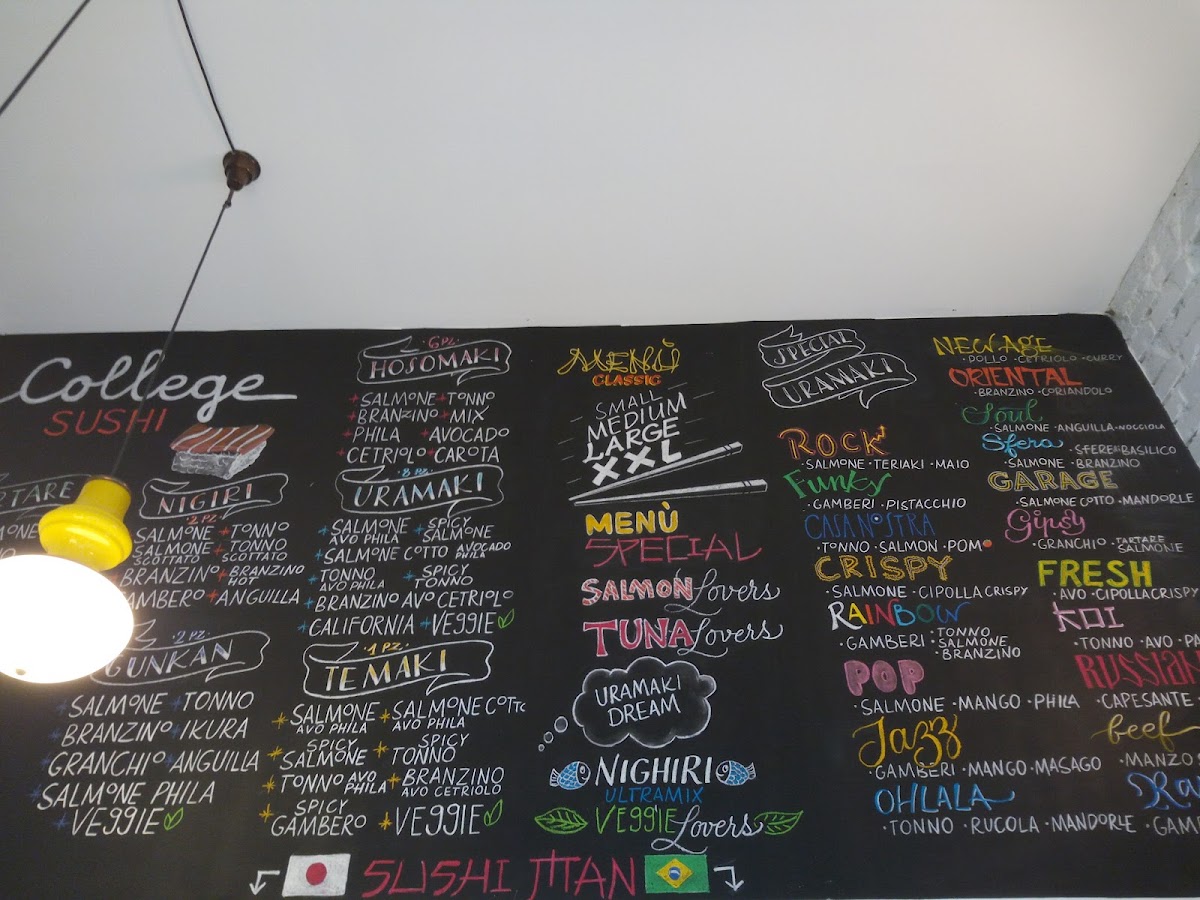 College
SUSHI
NIGIRI
2 PZ.
SALMONE + TONNO
SALMONE + TONNO
SCOTTATO SCOTTATO
BRANZINO + BRANZINO
HOT
+ ANGUILLA
2 PZ.
GUNKAN
+ SALMONE + TONNO
+ BRANZINO + IKURA
+ GRANCHIO + ANGUILLA
+ SALMONE PHILA
+ VEGGIE
6 PZ.
HOSOMAKI
+ SALMONE + TONNO
+ BRANZINO + MIX
+ PHILA + AVOCADO
+ CETRIOLO + CAROTA
8 PZ.
URAMAKI
+ SALMONE AVO PHILA + SPICY SALMONE
+ SALMONE COTTO AVOCADO PHILA
+ TONNO AVO PHILA + SPICY TONNO
+ BRANZINO AVO CETRIOLO
+ CALIFORNIA + VEGGIE
1 PZ.
TEMAKI
* SALMONE AVO PHILA * SALMONE COTTO AVO PHILA
* SPICY SALMONE * SPICY TONNO
* TONNO AVO PHILA * BRANZINO AVO CETRIOLO
* SPICY GAMBERO * VEGGIE
MENÙ
CLASSIC
SMALL
MEDIUM
LARGE
XXL
MENÙ
SPECIAL
SALMON Lovers
TUNA Lovers
URAMAKI
DREAM
NIGHIRI
ULTRAMIX
VEGGIE Lovers
SPECIAL
URAMAKI
ROCK
· SALMONE · TERIAKI · MAIO
Funky
· GAMBERI · PISTACCHIO
CASA NOSTRA
· TONNO · SALMON · POMO
CRISPY
· SALMONE · CIPOLLA CRISPY
RAINBOW
· GAMBERI · TONNO
· SALMONE
· BRANZINO
POP
· SALMONE · MANGO · PHILA
Jazz
· GAMBERI · MANGO · MASAGO
OHLALA
· TONNO · RUCOLA · MANDORLE
NEW AGE
· POLLO · CETRIOLO · CURRY
ORIENTAL
· BRANZINO · CORIANDOLO
Soul
· SALMONE · ANGUILLA · NOCCIOLA
Sfera
· SFERE BASILICO
· SALMONE · BRANZINO
GARAGE
· SALMONE COTTO · MANDORLE
Gipsy
· GRANCHIO · TARTARE SALMONE
FRESH
· AVO · CIPOLLA CRISPY
KOI
· TONNO · AVO
RUSSIAN
· CAPESANTE
beef
· MANZO
SUSHI MAN